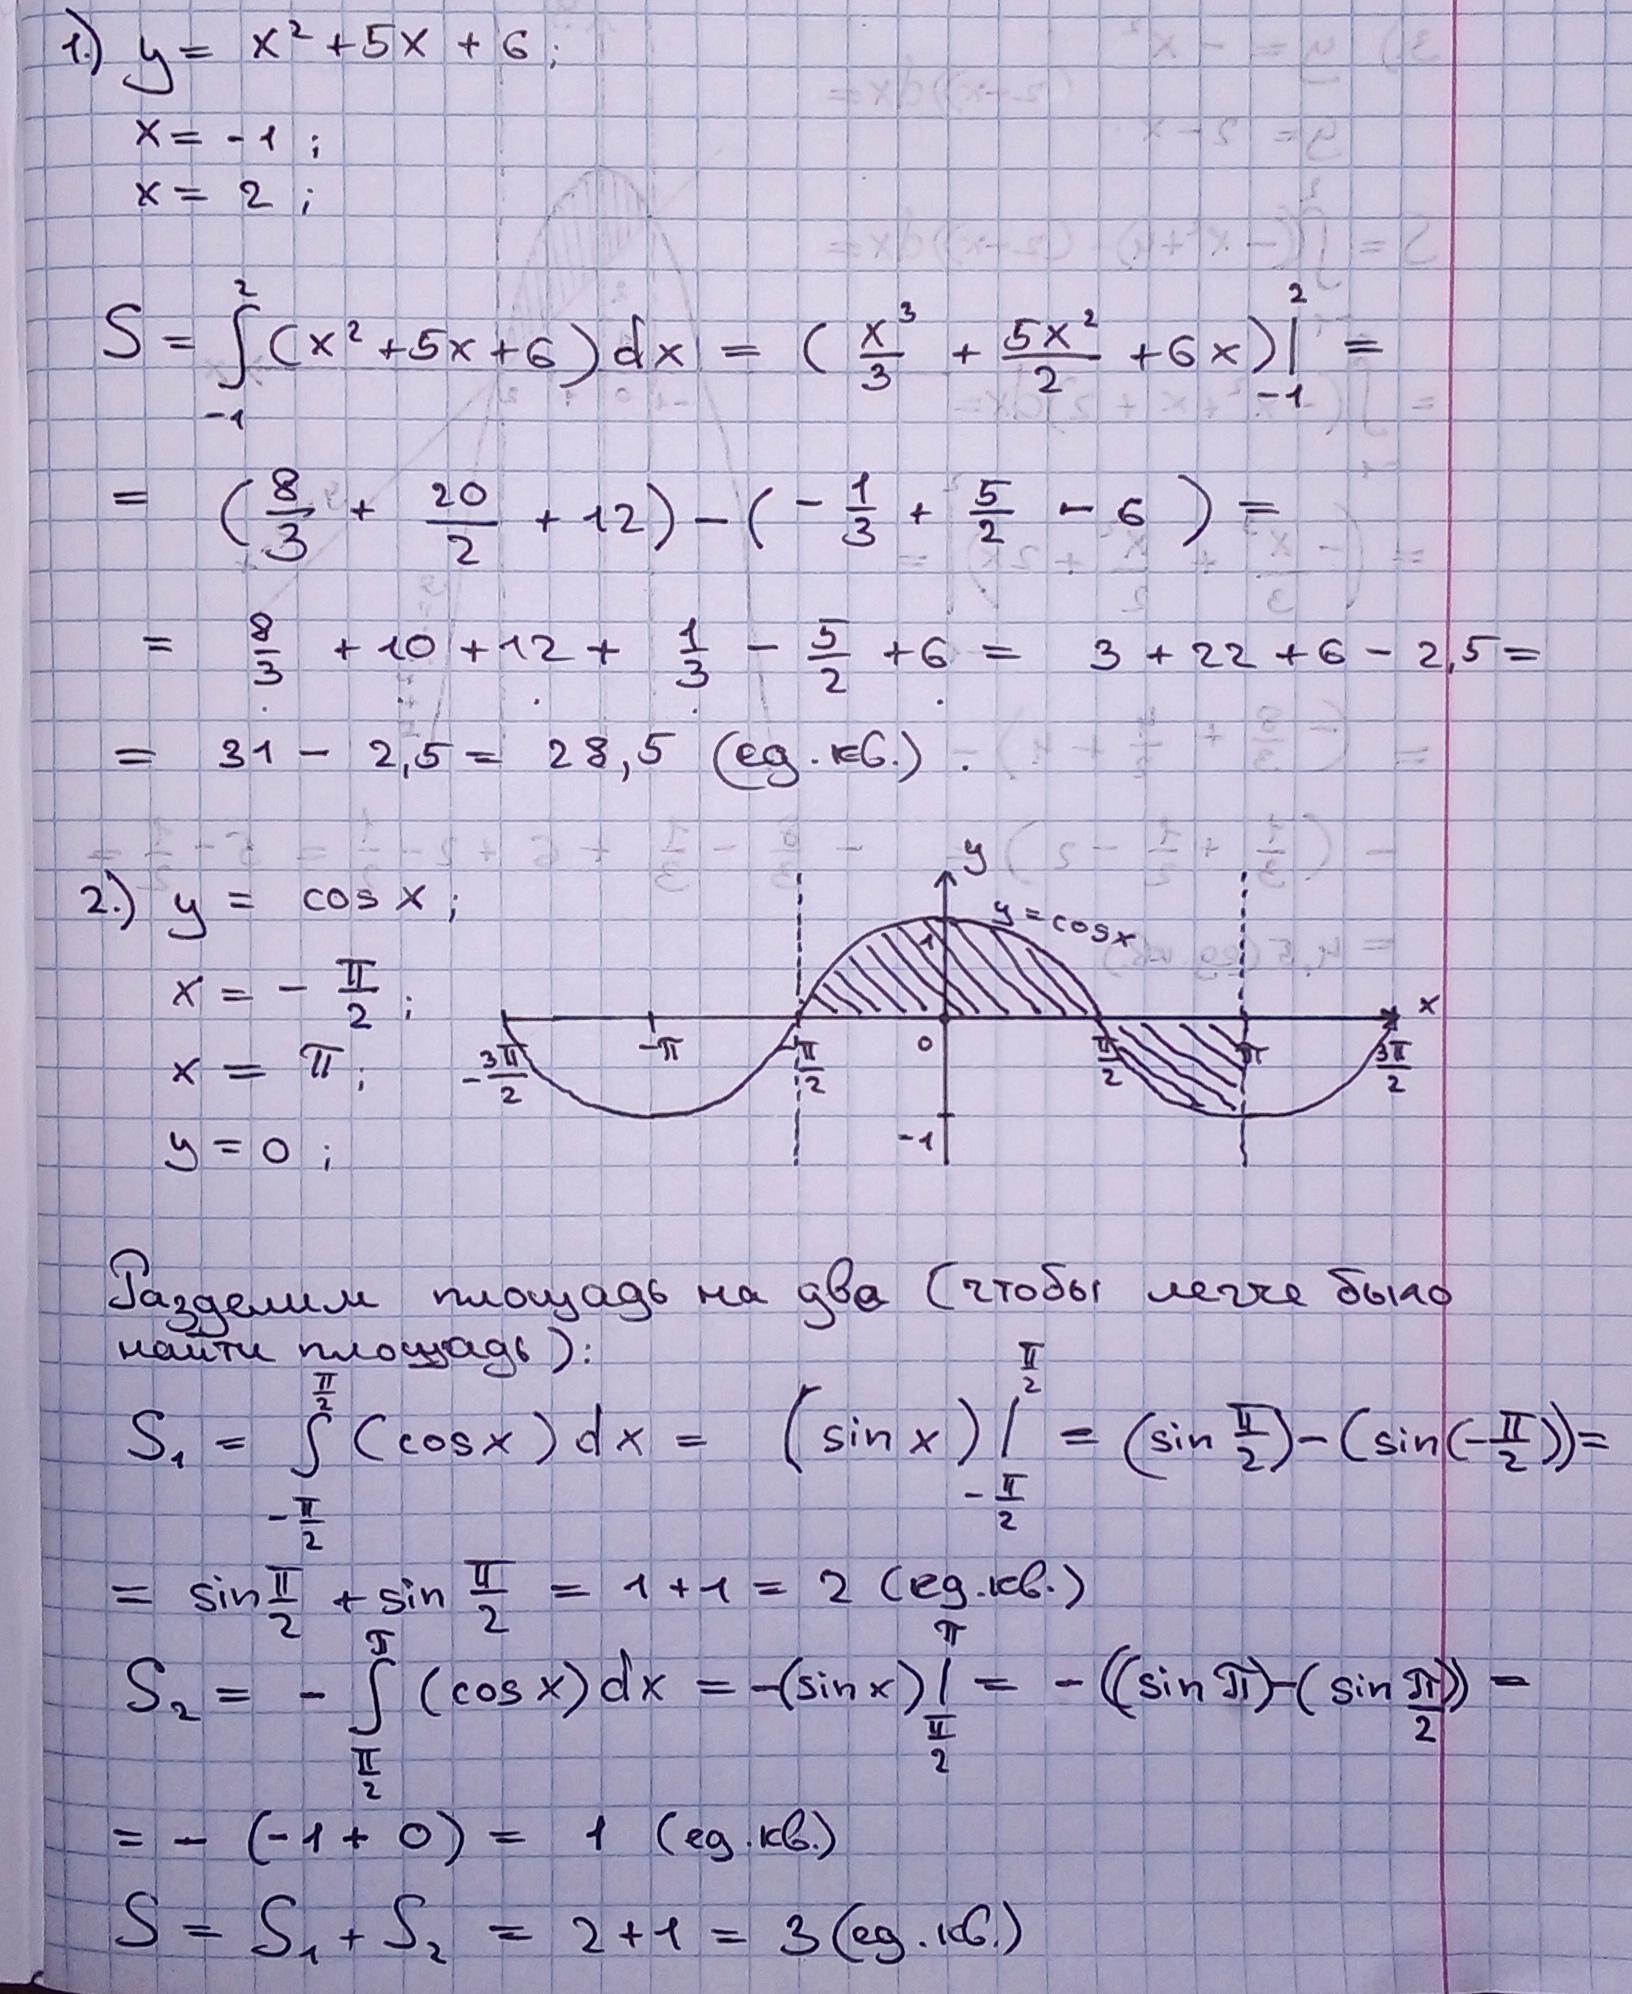 1.) y = x² + 5x + 6;
x = -1;
x = 2;
S = ∫₋₁² (x² + 5x + 6) dx = (x³/3 + 5x²/2 + 6x)|₋₁² =
= (8/3 + 20/2 + 12) - (-1/3 + 5/2 - 6) =
= 8/3 + 10 + 12 + 1/3 - 5/2 + 6 = 3 + 22 + 6 - 2,5 =
= 31 - 2,5 = 28,5 (ед. кв.).
2.) y = cos x;
x = - π/2;
x = π;
y = 0;
y
y = cos x
1
x
-3π/2 -π -π/2 0 π/2 π 3π/2
-1
Разделим площадь на два (чтобы легче было
найти площадь):
S₁ = ∫_{-π/2}^{π/2} (cos x) dx = (sin x)|_{-π/2}^{π/2} = (sin π/2) - (sin(-π/2)) =
= sin π/2 + sin π/2 = 1 + 1 = 2 (ед. кв.)
S₂ = - ∫_{π/2}^{π} (cos x) dx = -(sin x)|_{π/2}^{π} = - ((sin π) - (sin π/2)) =
= - (-1 + 0) = 1 (ед. кв.)
S = S₁ + S₂ = 2 + 1 = 3 (ед. кв.)